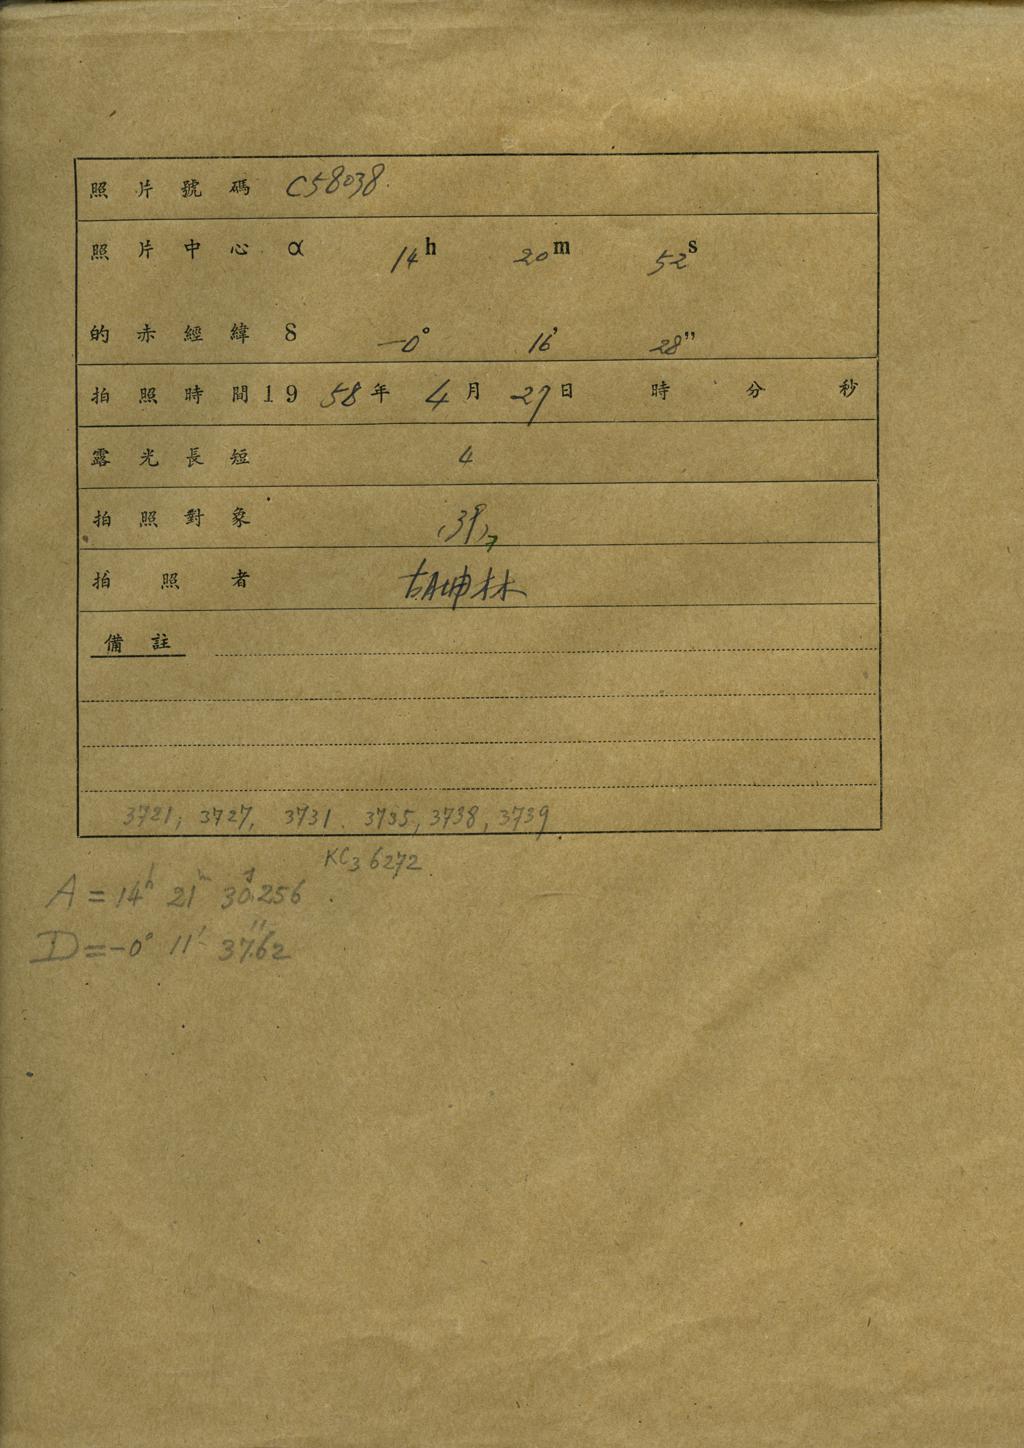 照片號碼 C58038.
照片中心 α 14h 20m 52s
的赤經緯 δ -0° 16' 28"
拍照時間 1958年 4月 27日 時 分 秒
露光長短 4
拍照對象 (39)7
拍照者 胡坤林
備註
3721, 3727, 3731. 3735, 3738, 3739
KC3 6272.
A = 14h 21m 30s.256
D = -0° 11' 37".62